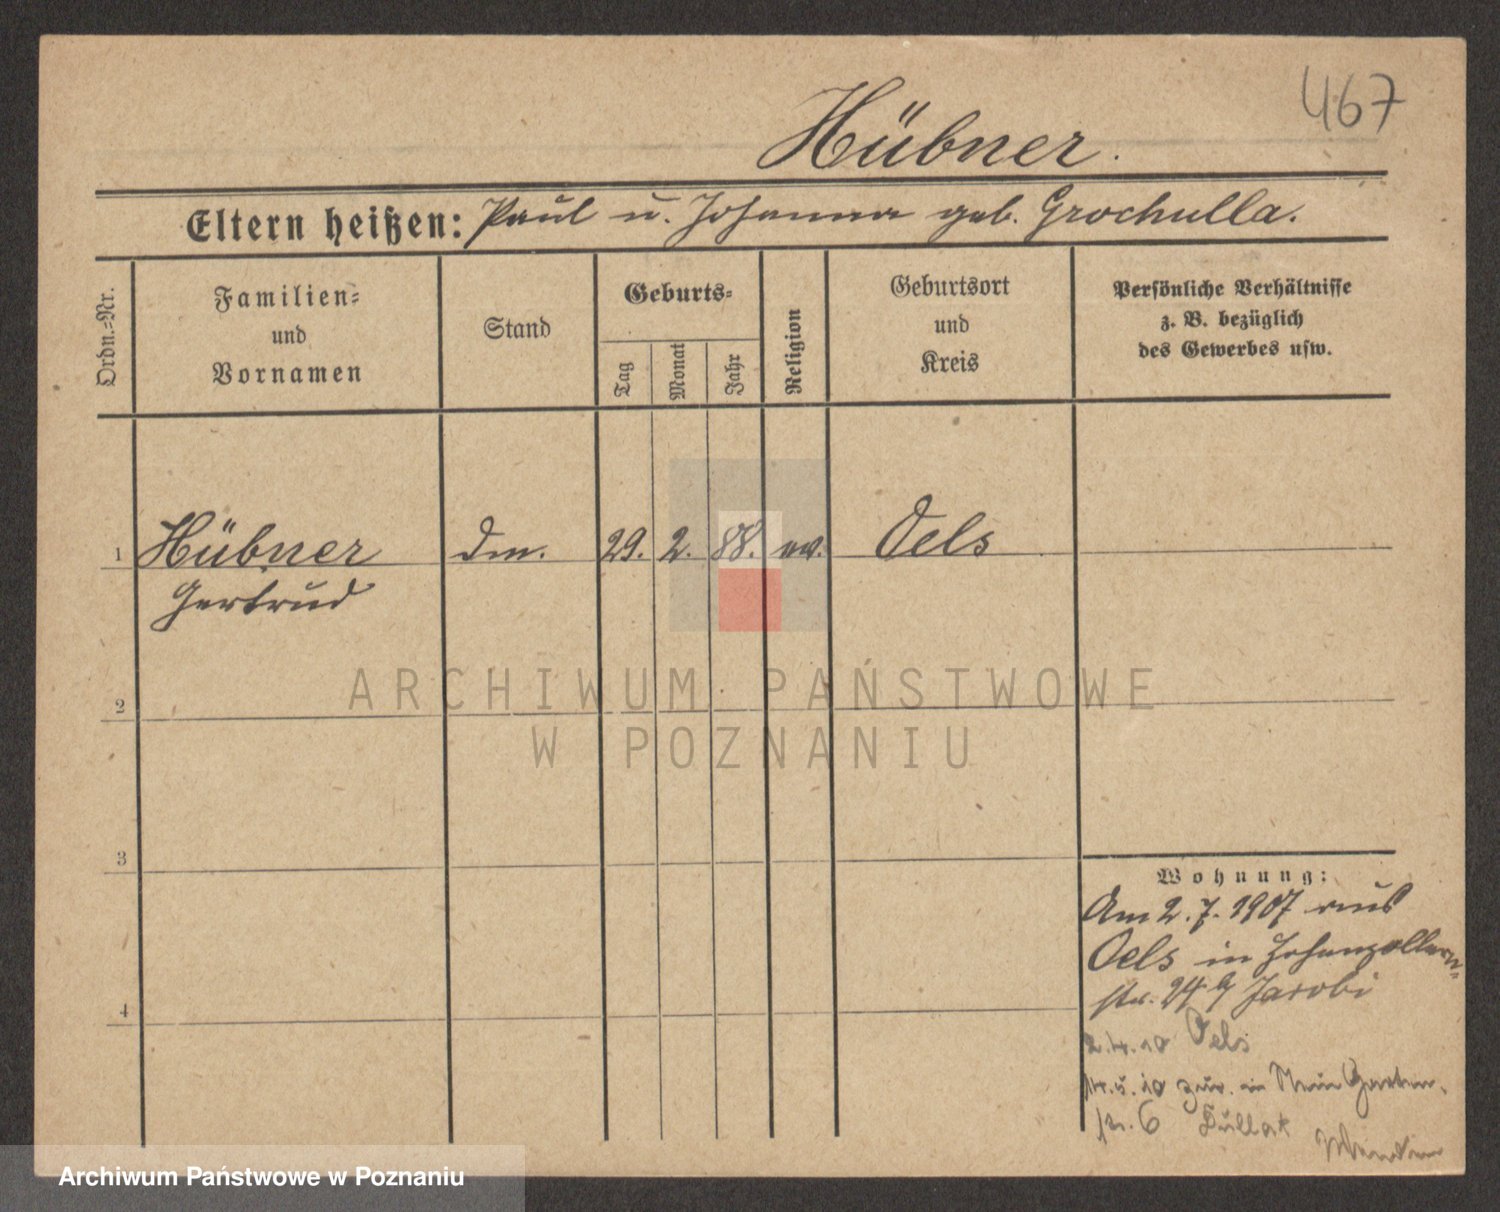 467
Hübner.
Eltern heißen: Paul u. Johanna geb. Grochulla.
Ordn.-Nr.
Familien-
und
Vornamen
Stand
Geburts-
Tag
Monat
Jahr
Religion
Geburtsort
und
Kreis
Persönliche Verhältnisse
z. B. bezüglich
des Gewerbes usw.
1 Hübner Dm. 29. 2. 88. ev. Oels
Gertrud
2
3
4
Wohnung:
Am 2.7.1907 aus
Oels in Hohenzollern-
str. 24 Jacobi
2.4.10 Oels
14.5.10 zur. in Garten-
str. 6
ARCHIWUM PAŃSTWOWE
W POZNANIU
Archiwum Państwowe w Poznaniu